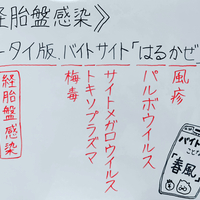 経胎盤感染》
ータイ版.バイトサイト「はるかぜ
風疹
パルボウイルス
サイトメガロウイルス
トキソプラズマ
梅毒
経胎盤感染
バイト
ことな
「春風」